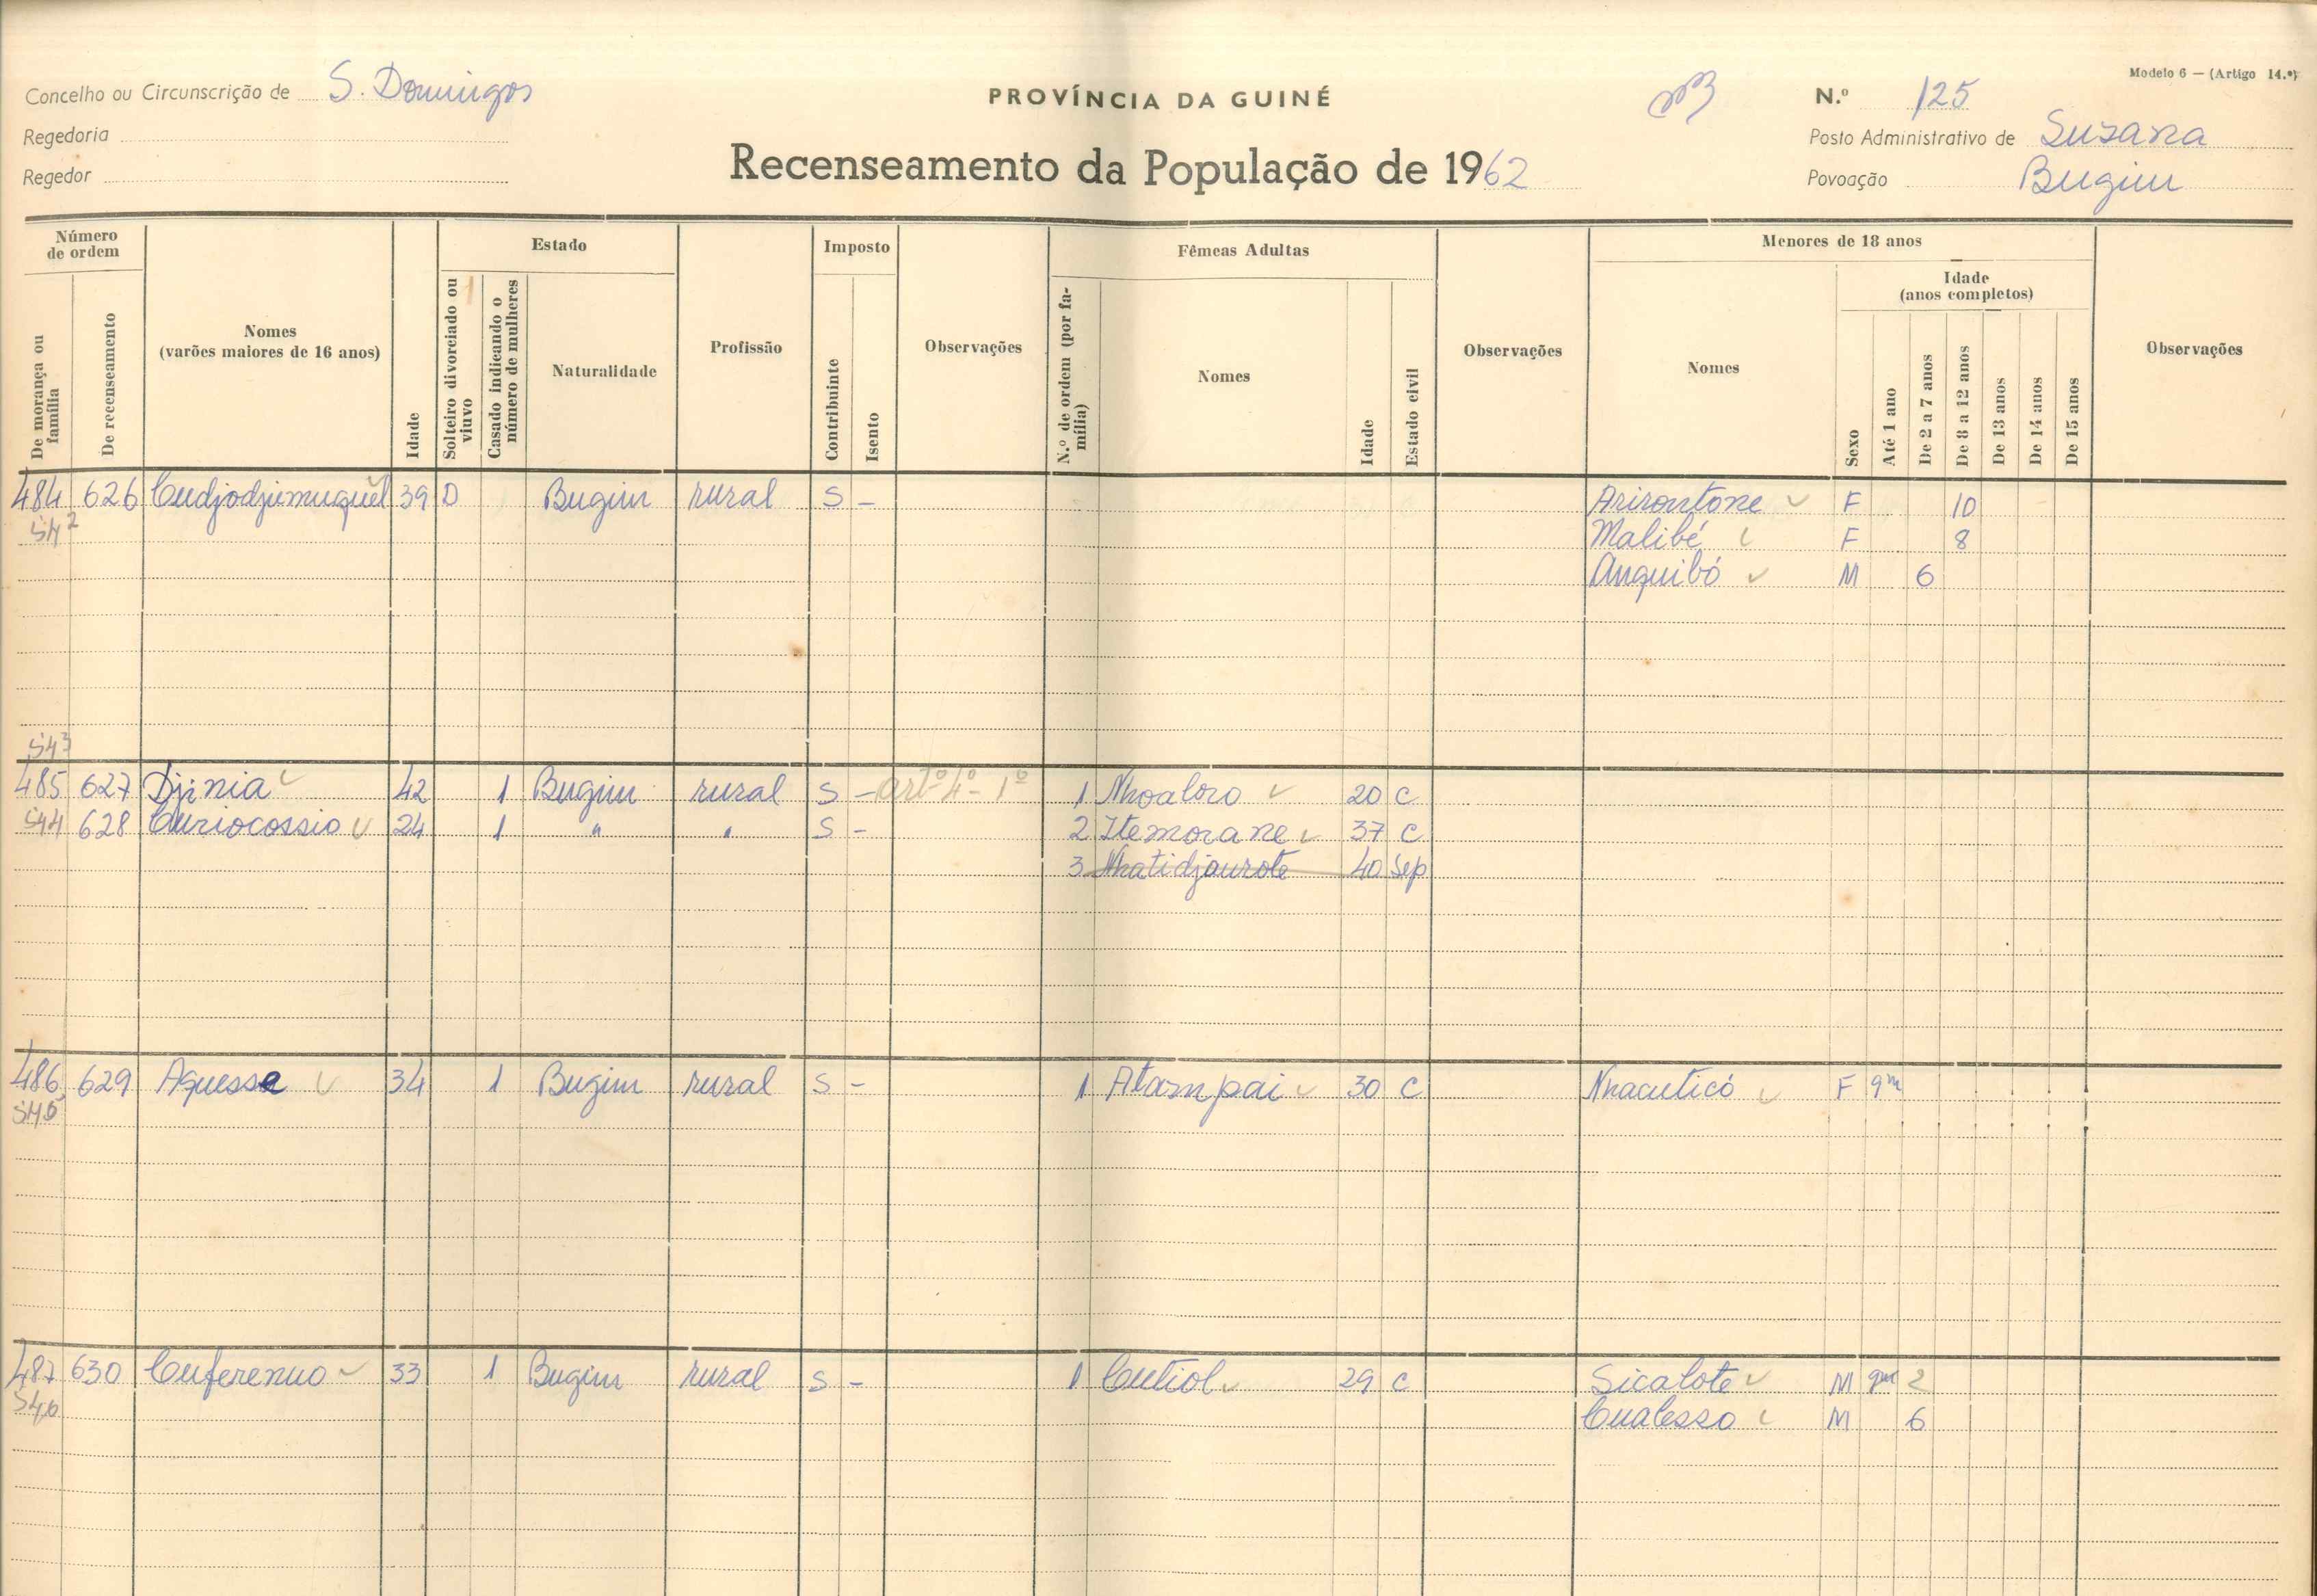 Modelo 6 — (Artigo 14.º)
Concelho ou Circunscrição de S. Domingos
PROVÍNCIA DA GUINÉ
N.º 125
Regedoria
Posto Administrativo de Suzana
Regedor
Recenseamento da População de 1962
Povoação Bugim
Número de ordem
De morança ou família
De recenseamento
Nomes
(varões maiores de 16 anos)
Idade
Estado
Solteiro divorciado ou viuvo
Casado indicando o número de mulheres
Naturalidade
Profissão
Imposto
Contribuinte
Isento
Observações
Fêmeas Adultas
N.º de ordem (por família)
Nomes
Idade
Estado civil
Observações
Menores de 18 anos
Nomes
Sexo
Idade
(anos completos)
Até 1 ano
De 2 a 7 anos
De 8 a 12 anos
De 13 anos
De 14 anos
De 15 anos
Observações
484 626 Cudjodjimuquel 39 D Bugim rural S - Arirontone F 10
542 Malibé F 8
Anquibó M 6
543
485 627 Djinia 42 1 Bugim rural S - artº 4º - 1º 1 Nhoaloro 20 C
544 628 Curiocossio 24 1 " " S - 2 Itemorane 37 C
3 Nhatidjaurote 40 Sep
486 629 Aquesse 34 1 Bugim rural S - 1 Atampai 30 C Nhacuticó F 9m
545
487 630 Cuferenuo 33 1 Bugim rural S - 1 Cutiol 29 C Sicalote M 9m 2
546 Cualesso M 6